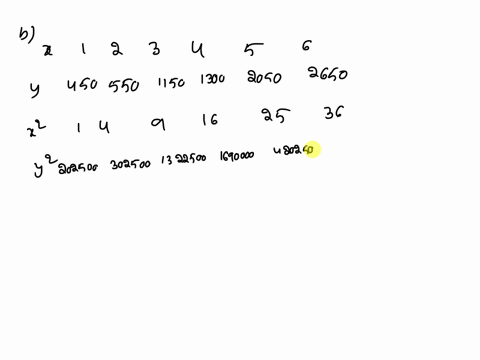 b)
x 1 2 3 4 5 6
y 450 550 1150 1300 2050 2650
x² 1 4 9 16 25 36
y² 202500 302500 1322500 1690000 420250